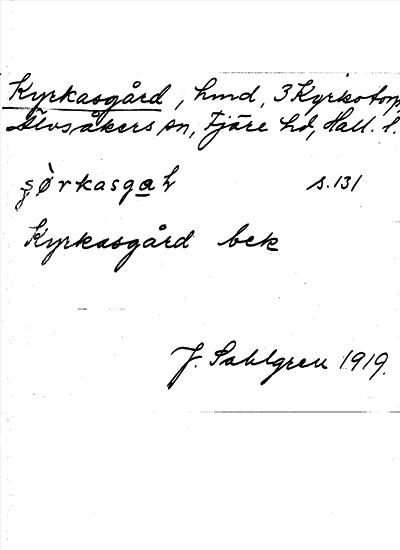 Kyrkasgård, hmd, 3 Kyrkotorp,
Älvsåkers sn, Fjäre hd, Hall. l.
s.131
Kyrkasgård bek
J. Sahlgren 1919.